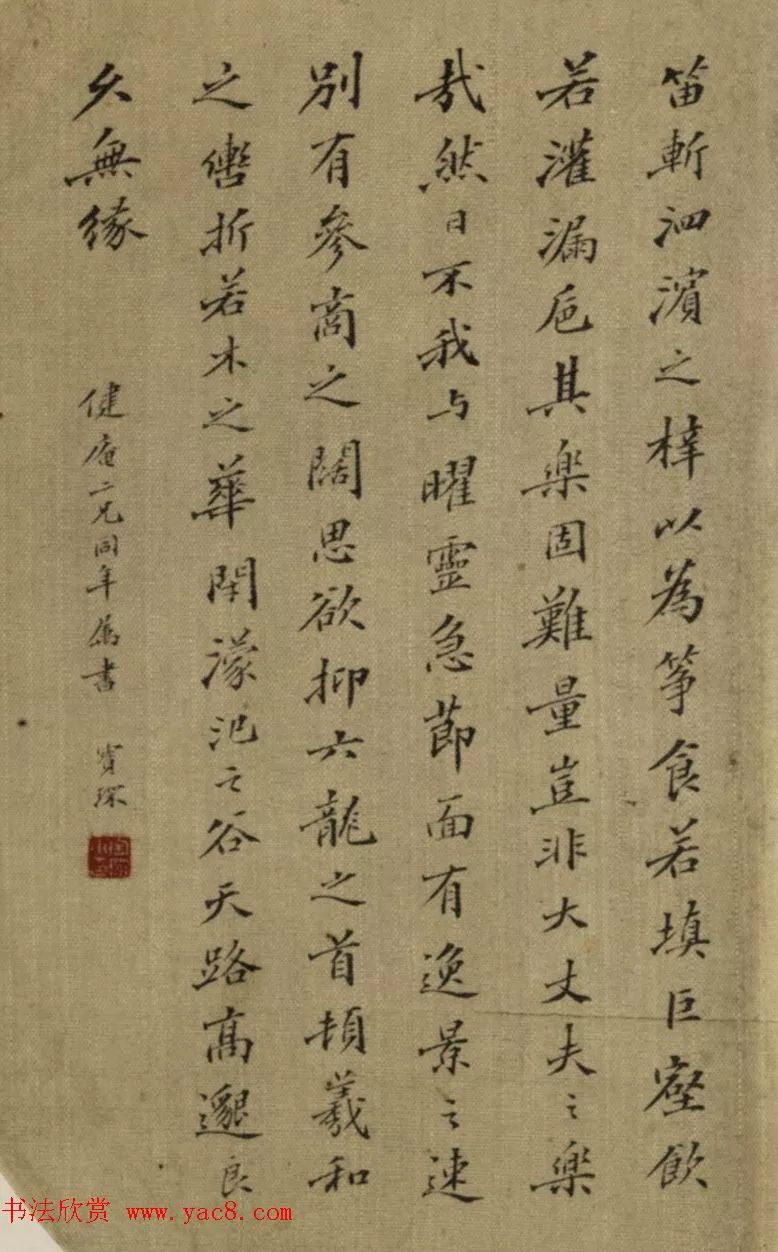 笛斬泗濱之梓以為箏食若填巨壑飲
若灌漏卮其樂固難量豈非大丈夫之樂
哉然日不我与曜靈急節面有逸景之速
別有參商之闊思欲抑六龍之首頓羲和
之轡折若木之華閇濛汜之谷天路高邈良
久無緣
健庵二兄同年屬書 寶琛
书法欣赏 www.yac8.com